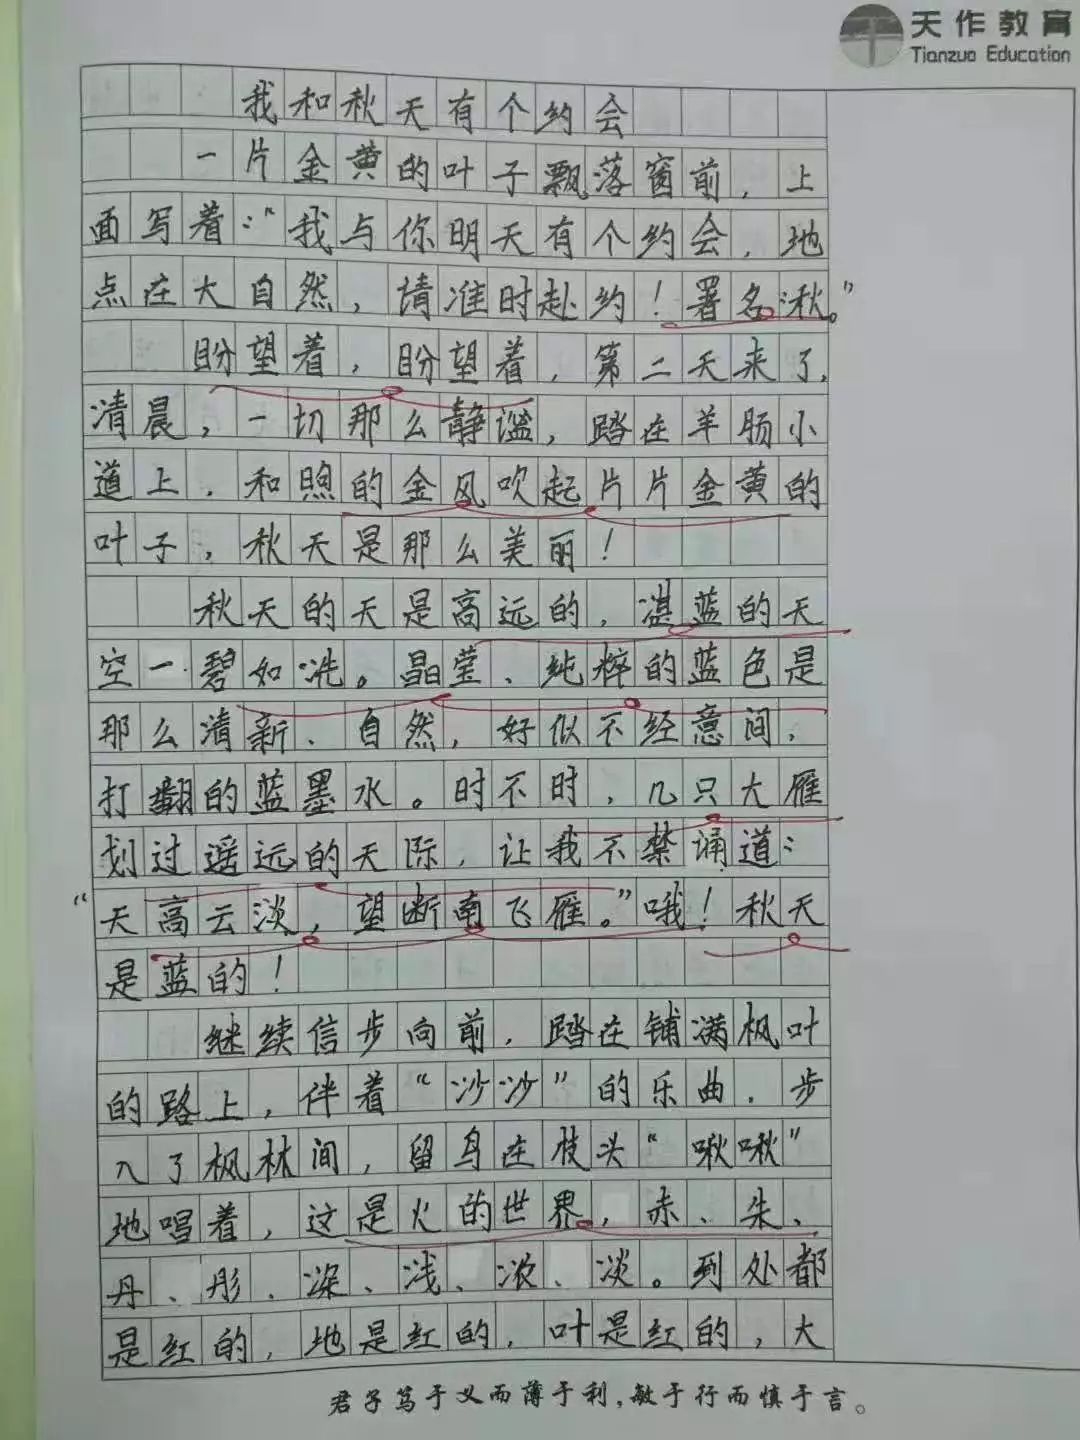 天作教育
Tianzuo Education
我和秋天有个约会
一片金黄的叶子飘落窗前，上
面写着：“我与你明天有个约会，地
点在大自然，请准时赴约！署名：秋。”
盼望着，盼望着，第二天来了，
清晨，一切那么静谧，踏在羊肠小
道上，和煦的金风吹起片片金黄的
叶子，秋天是那么美丽！
秋天的天是高远的，湛蓝的天
空一碧如洗。晶莹、纯粹的蓝色是
那么清新、自然，好似不经意间，
打翻的蓝墨水。时不时，几只大雁
划过遥远的天际，让我不禁诵道：
“天高云淡，望断南飞雁。”哦！秋天
是蓝的！
继续信步向前，踏在铺满枫叶
的路上，伴着“沙沙”的乐曲，步
入了枫林间，留鸟在枝头“啾啾”
地唱着，这是火的世界，赤、朱、
丹、彤、深、浅、浓、淡。到处都
是红的，地是红的，叶是红的，大
君子笃于义而薄于利，敏于行而慎于言。